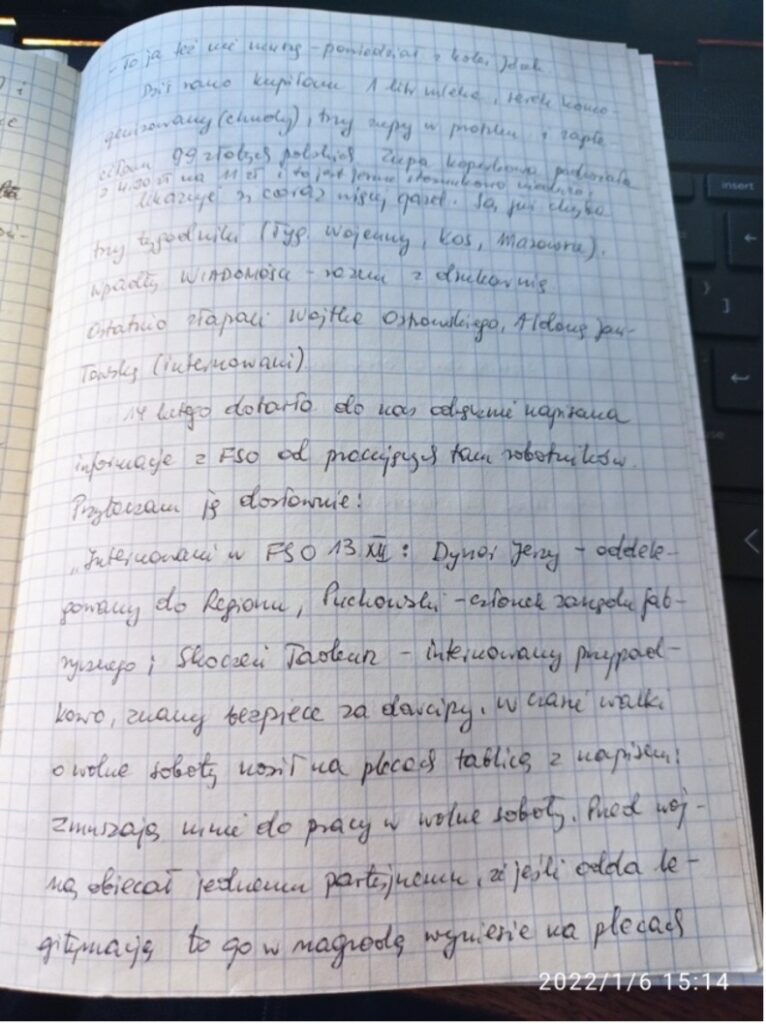 - To ja też nie muszę - powiedział z kolei Jacek.
Dziś rano kupiłam 1 litr mleka, serek homo-
genizowany (chudy), trzy zupy w proszku i zapła-
ciłam 99 złotych polskich. Zupa koperkowa podrożała
z 4.20 zł na 11 zł i to jest jeszcze stosunkowo niedużo.
Ukazuje się coraz więcej gazet. Są już chyba
trzy tygodniki (Tyg. Wojenny, Kos, Mazowsze).
Wpadły WIADOMOŚCI - razem z drukarnią.
Ostatnio złapali Wojtka Ostrowskiego, Aldonę Jaw-
łowską (internowani).
14 lutego dotarło do nas odręcznie napisana
informacja z FSO od pracujących tam robotników.
Przytaczam ją dosłownie:
"Internowani w FSO 13.XII: Dynor Jerzy - oddele-
gowany do Regionu, Puchowski - członek zarządu fab-
rycznego i Skoczeń Tadeusz - internowany przypad-
kowo, znany bezpiece za dowcipy. W czasie walki
o wolne soboty nosił na plecach tablicę z napisem:
zmuszają mnie do pracy w wolne soboty. Przed woj-
ną obiecał jednemu partyjnemu, że jeśli odda le-
gitymację to go w nagrodę wyniesie na plecach
2022/1/6 15:14
insert